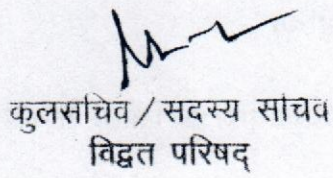 कुलसचिव / सदस्य सचिव
विद्वत परिषद्